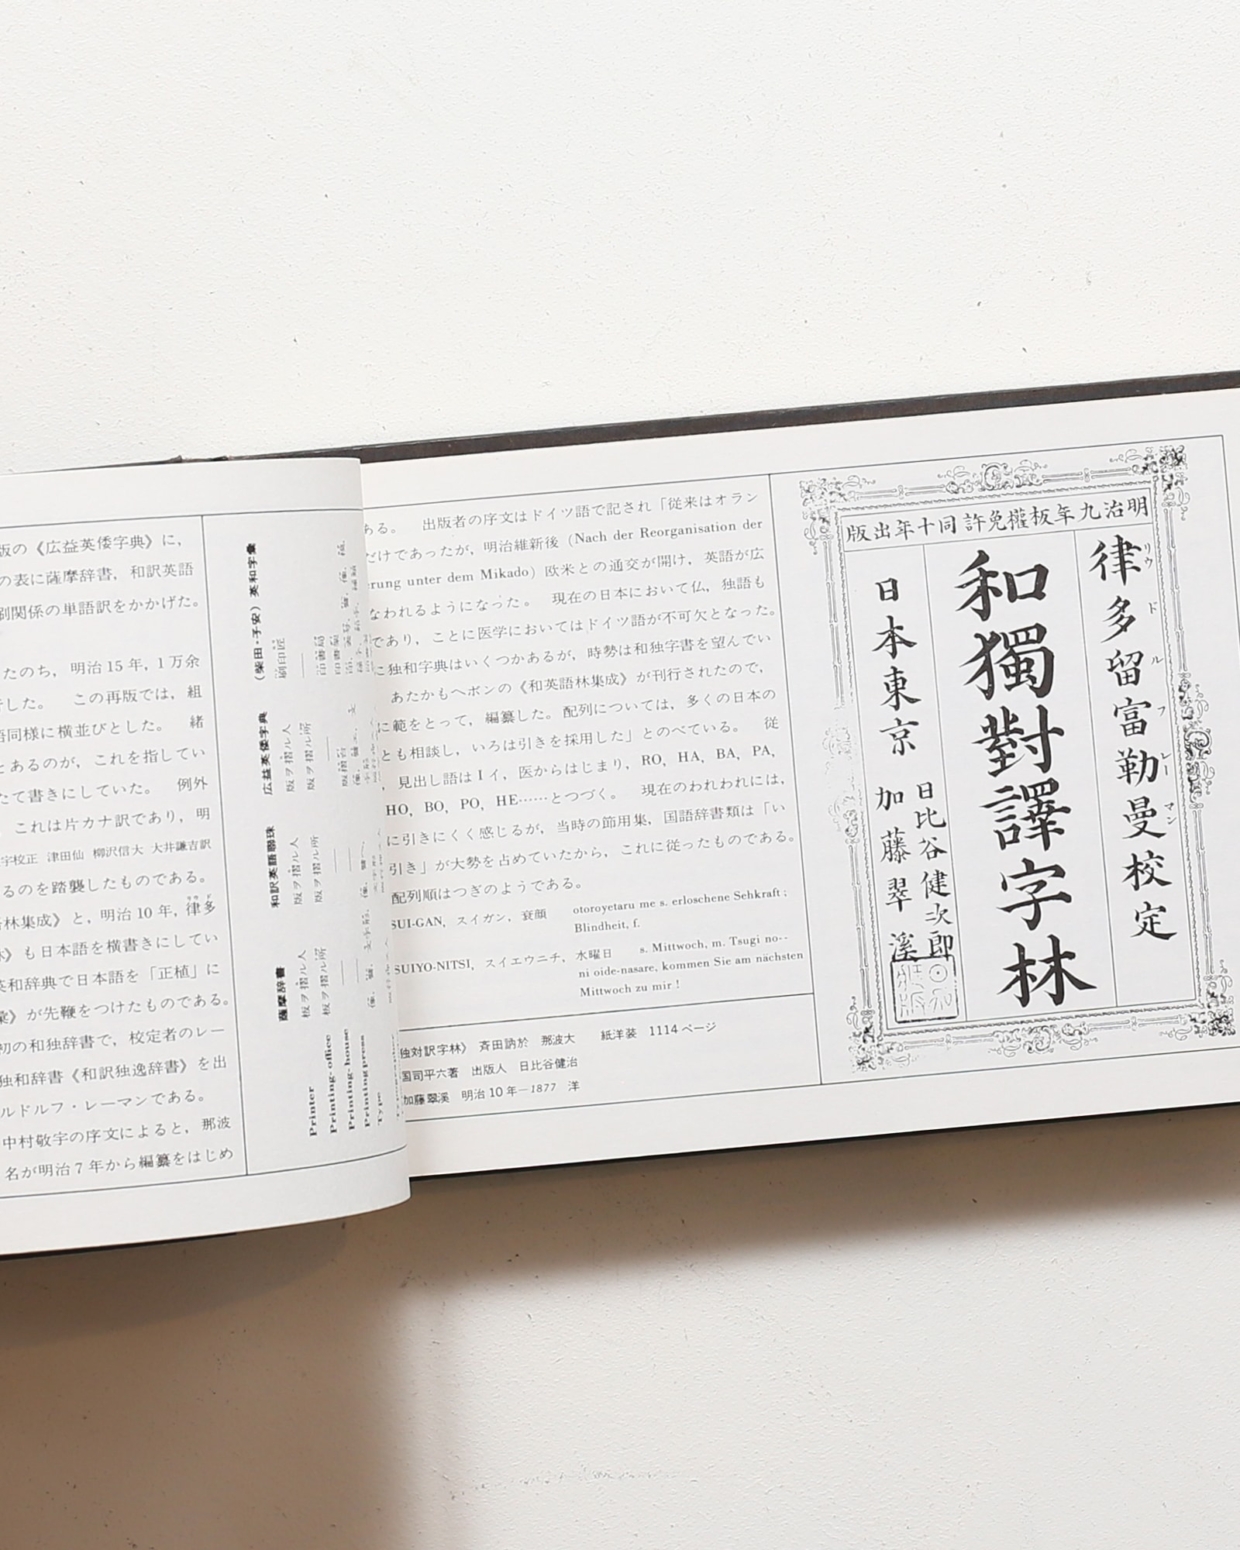 版の《広益英倭字典》に,
の表に薩摩辞書,和訳英語
刷関係の単語訳をかかげた。
たのち, 明治15年,1万余
した。 この再版では, 組
同様に横並びとした。 緒
とあるのが, これを指してい
たて書きにしていた。 例外
これは片カナ訳であり, 明
字校正 津田仙 柳沢信大 大井鎌吉訳
るのを踏襲したものである。
林集成》と, 明治10年, 律多
》も日本語を横書きにしてい
英和辞典で日本語を「正植」に
》が先鞭をつけたものである。
初の和独辞書で, 校定者のレー
独和辞書《和訳独逸辞書》を出
ルドルフ・レーマンである。
中村敬宇の序文によると, 那波
名が明治7年から編纂をはじめ
(柴田・子安) 英和字彙
広益英倭字典
和訳英語聯珠
薩摩辞書
Printer
版ヲ摺ル人
版ヲ摺ル人
板ヲ摺ル人
Printing-office
版ヲ摺ル所
版ヲ摺ル所
板ヲ摺ル所
Printing-house
Printing press
Type
ある。 出版者の序文はドイツ語で記され「従来はオラン
だけであったが, 明治維新後 (Nach der Reorganisation der
erung unter dem Mikado) 欧米との通交が開け, 英語が広
なわれるようになった。 現在の日本において仏, 独語も
であり, ことに医学においてはドイツ語が不可欠となった。
に独和字典はいくつかあるが, 時勢は和独字書を望んでい
あたかもヘボンの《和英語林集成》が刊行されたので,
に範をとって, 編纂した。配列については, 多くの日本の
とも相談し, いろは引きを採用した」とのべている。 従
, 見出し語は I イ, 医からはじまり, RO, HA, BA, PA,
HO, BO, PO, HE……とつづく。 現在のわれわれには,
に引きにくく感じるが, 当時の節用集, 国語辞書類は「い
引き」が大勢を占めていたから, これに従ったものである。
配列順はつぎのようである。
SUI-GAN, スイガン, 衰顔 otoroyetaru me s. erloschene Sehkraft ;
Blindheit, f.
SUIYO-NITSI, スイエウニチ, 水曜日 s. Mittwoch, m. Tsugi no--
ni oide-nasare, kommen Sie am nächsten
Mittwoch zu mir !
独対訳字林》 斉田訥於 那波大 紙洋装 1114ページ
国司平六著 出版人 日比谷健治
加藤翠溪 明治10年—1877 洋
明治九年板權免許同十年出版
律多留富勒曼校定
リウ ド ル フ レー マン
和獨對譯字林
日本東京
日比谷健次郎
加藤翠溪